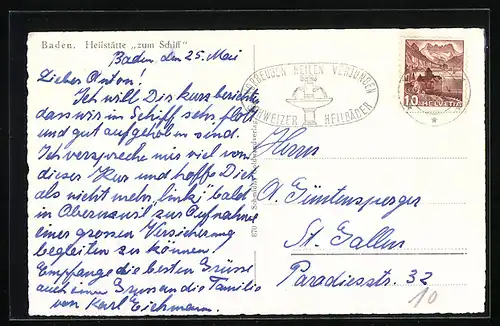 Baden. Heilstätte „zum Schiff"
Baden den 25. Mai
Lieber Anton!
Ich will Dir kurz berichten
dass wir im Schiff sehr flott
und gut aufgehoben sind.
Ich verspreche mir viel von
dieser Kur und hoffe Dich
als nicht mehr „link" bald
in Oberuzwil zur Aufnahme
einer grossen Versicherung
begleiten zu können.
Empfange die besten Grüsse
auch einen Gruss an die Familie
von Karl Eichmann.
VORBEUGEN HEILEN VERJÜNGEN
SCHWEIZER HEILBÄDER
10 HELVETIA
Herrn
A. Güntensperger
St. Gallen
Paradiesstr. 32
10